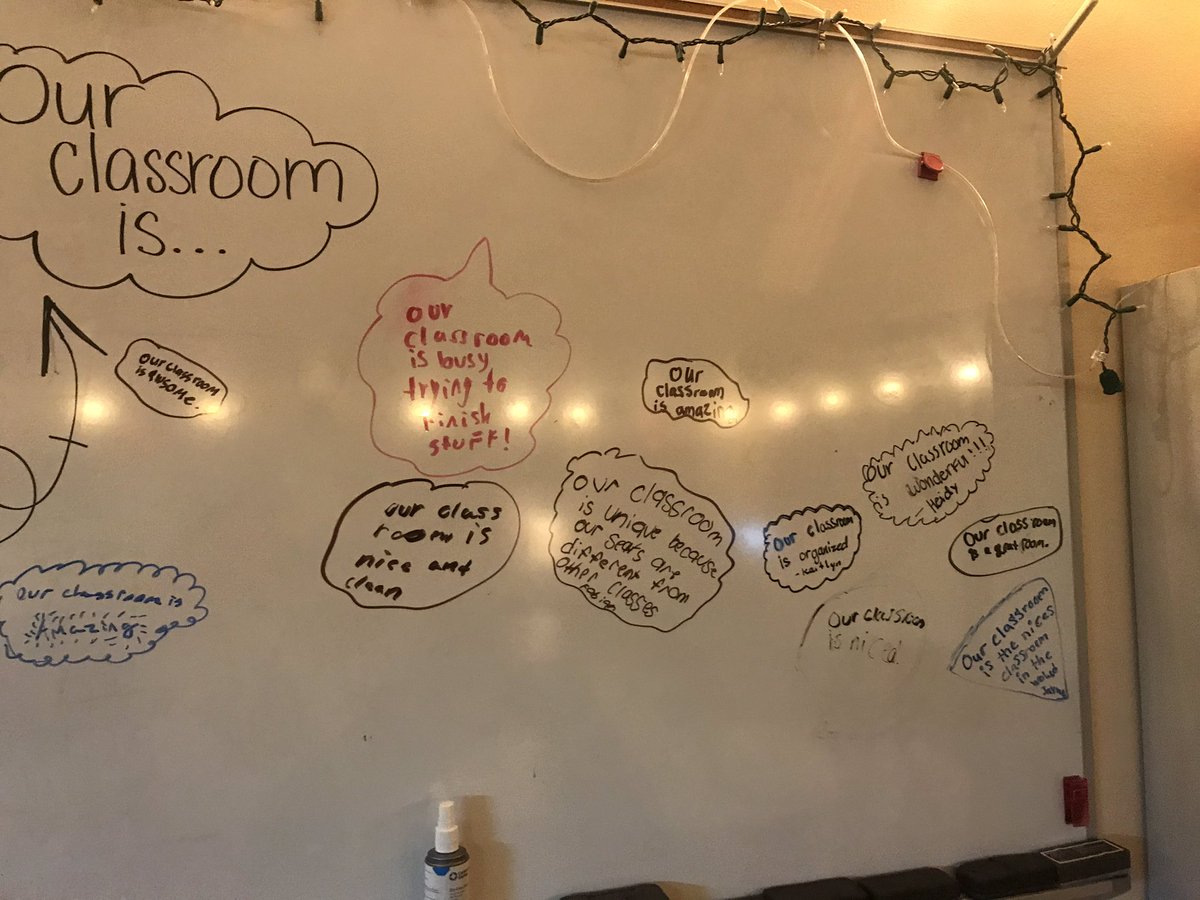 Our
classroom
is...
our classroom
is awsome.
our
classroom
is busy
trying to
finish
stuff!
Our
classroom
is amazing
our class
room is
nice and
clean
Our classroom
is unique because
our seats are
different from
other classes
Our classroom
is organized
-Kaitlyn
Our Classroom
is Wonderful!!!
Heidy
Our classroom
is a great room.
our classroom is
Amazing
Our classroom
is nice
Our classroom
is the nices
classroom
in the